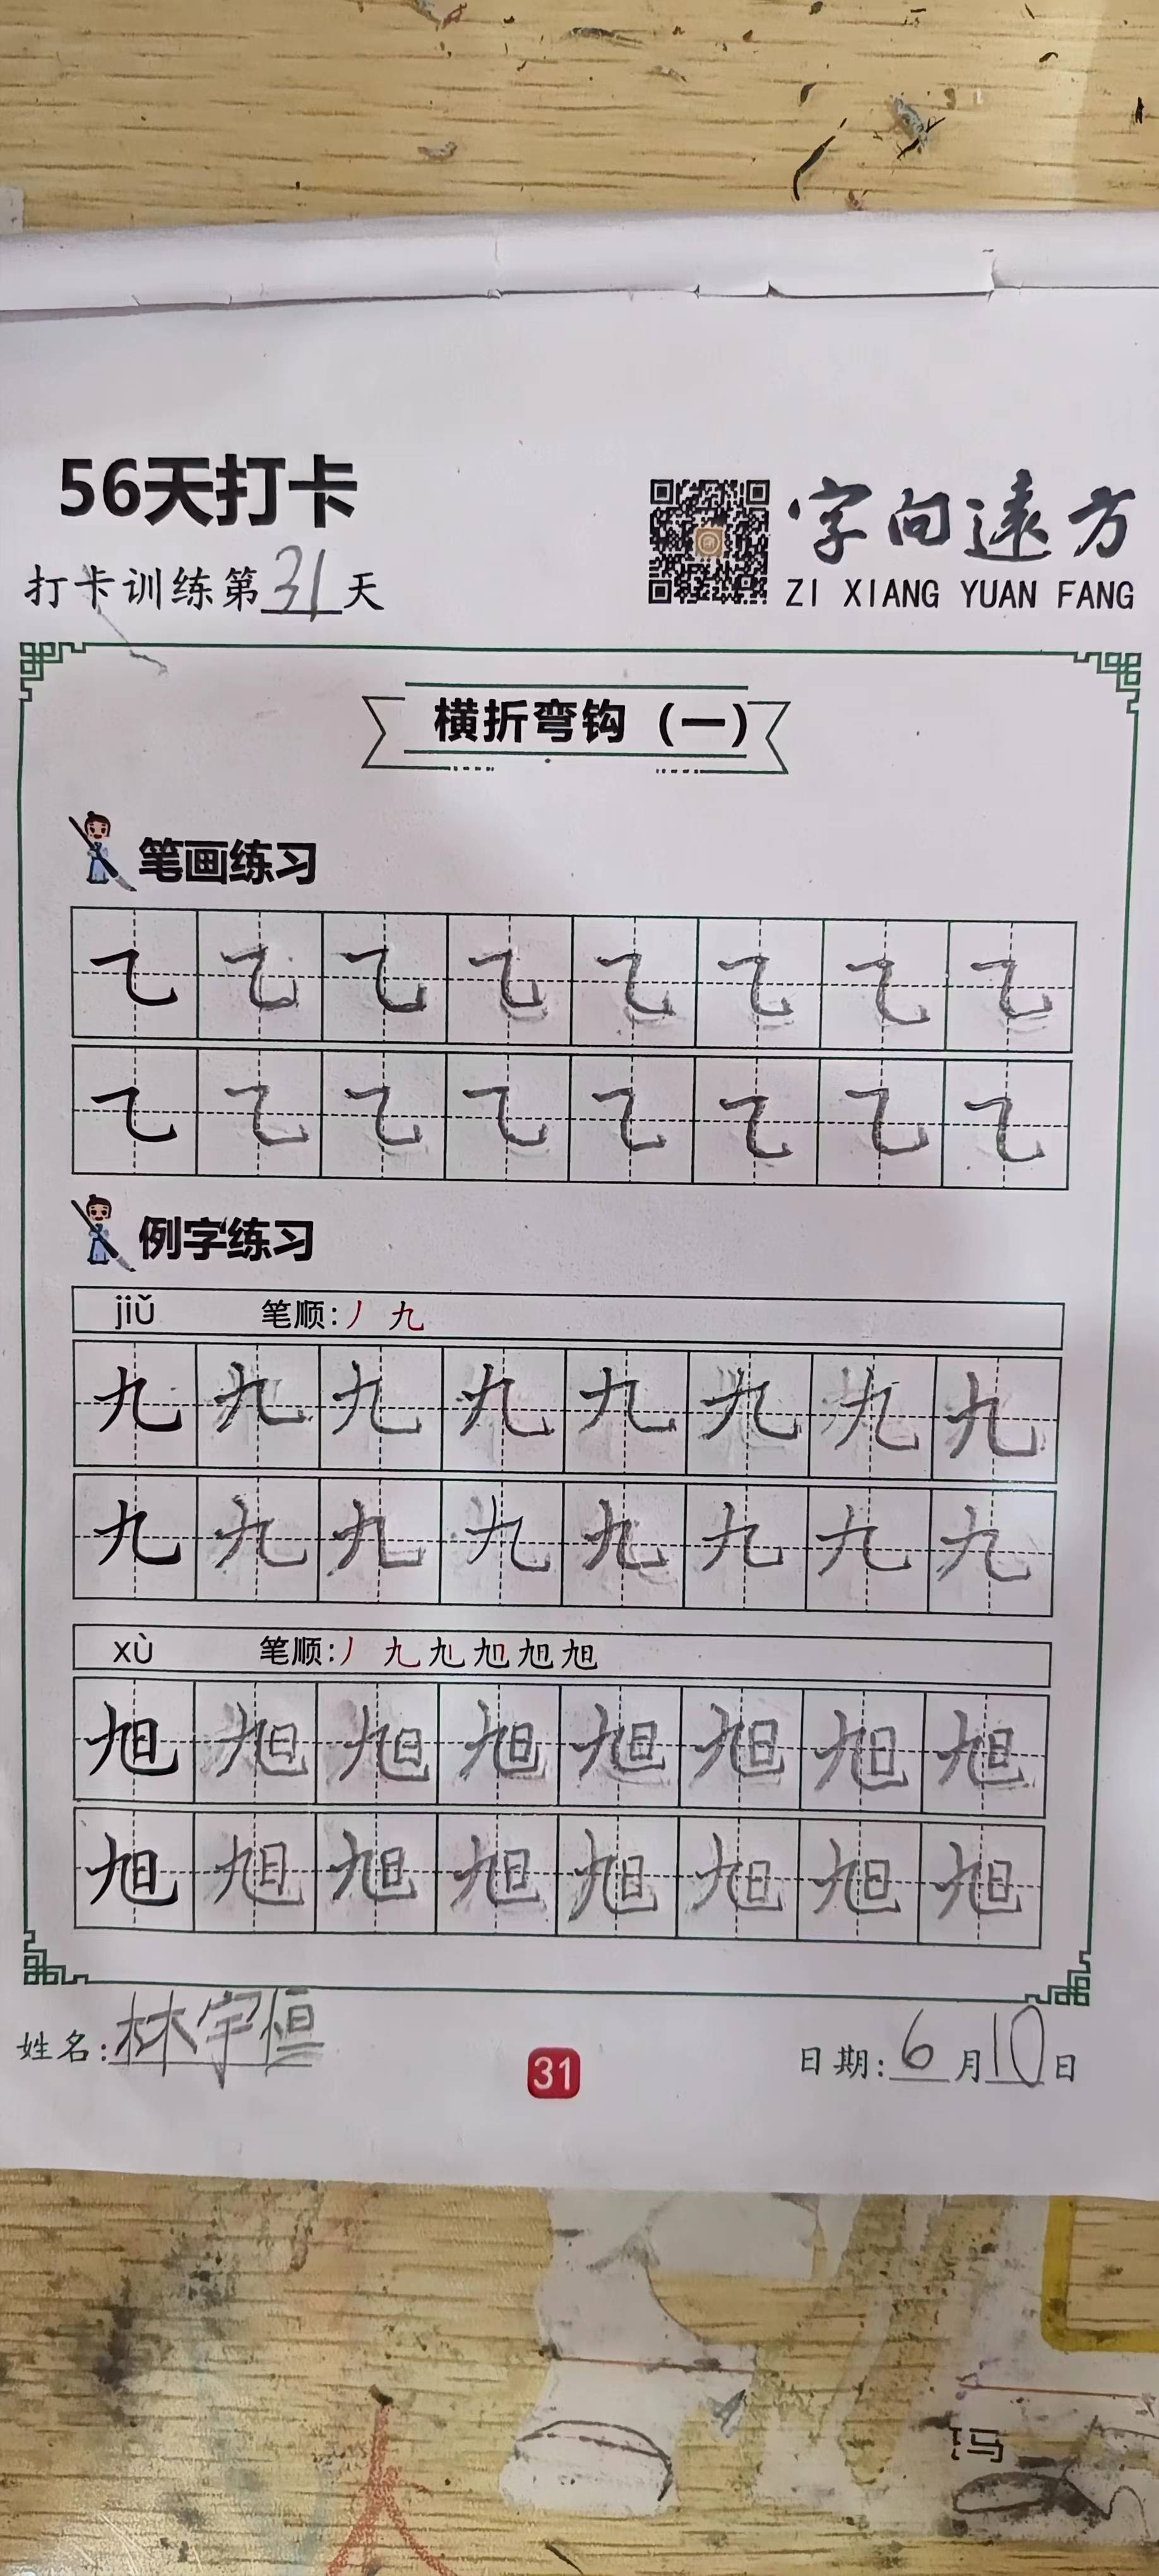 56天打卡
打卡训练第31天
字向遠方
ZI XIANG YUAN FANG
横折弯钩（一）
笔画练习
㇈ ㇈ ㇈ ㇈ ㇈ ㇈ ㇈ ㇈
㇈ ㇈ ㇈ ㇈ ㇈ ㇈ ㇈ ㇈
例字练习
jiǔ 笔顺:丿 九
九 九 九 九 九 九 九 九
九 九 九 九 九 九 九 九
xù 笔顺:丿 九
旭 旭 旭 旭 旭 旭 旭 旭
旭 旭 旭 旭 旭 旭 旭 旭
姓名:林宇桓
31
日期:6月10日
玛